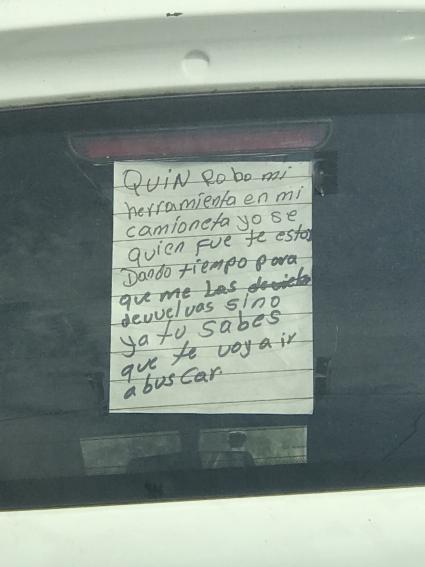 QUIN Robo mi
herramienta en mi
camioneta yo se
quien Fue te estoy
Dando tiempo para
que me Las
devuelvas sino
ya tu Sabes
que te voy a ir
a bus Car